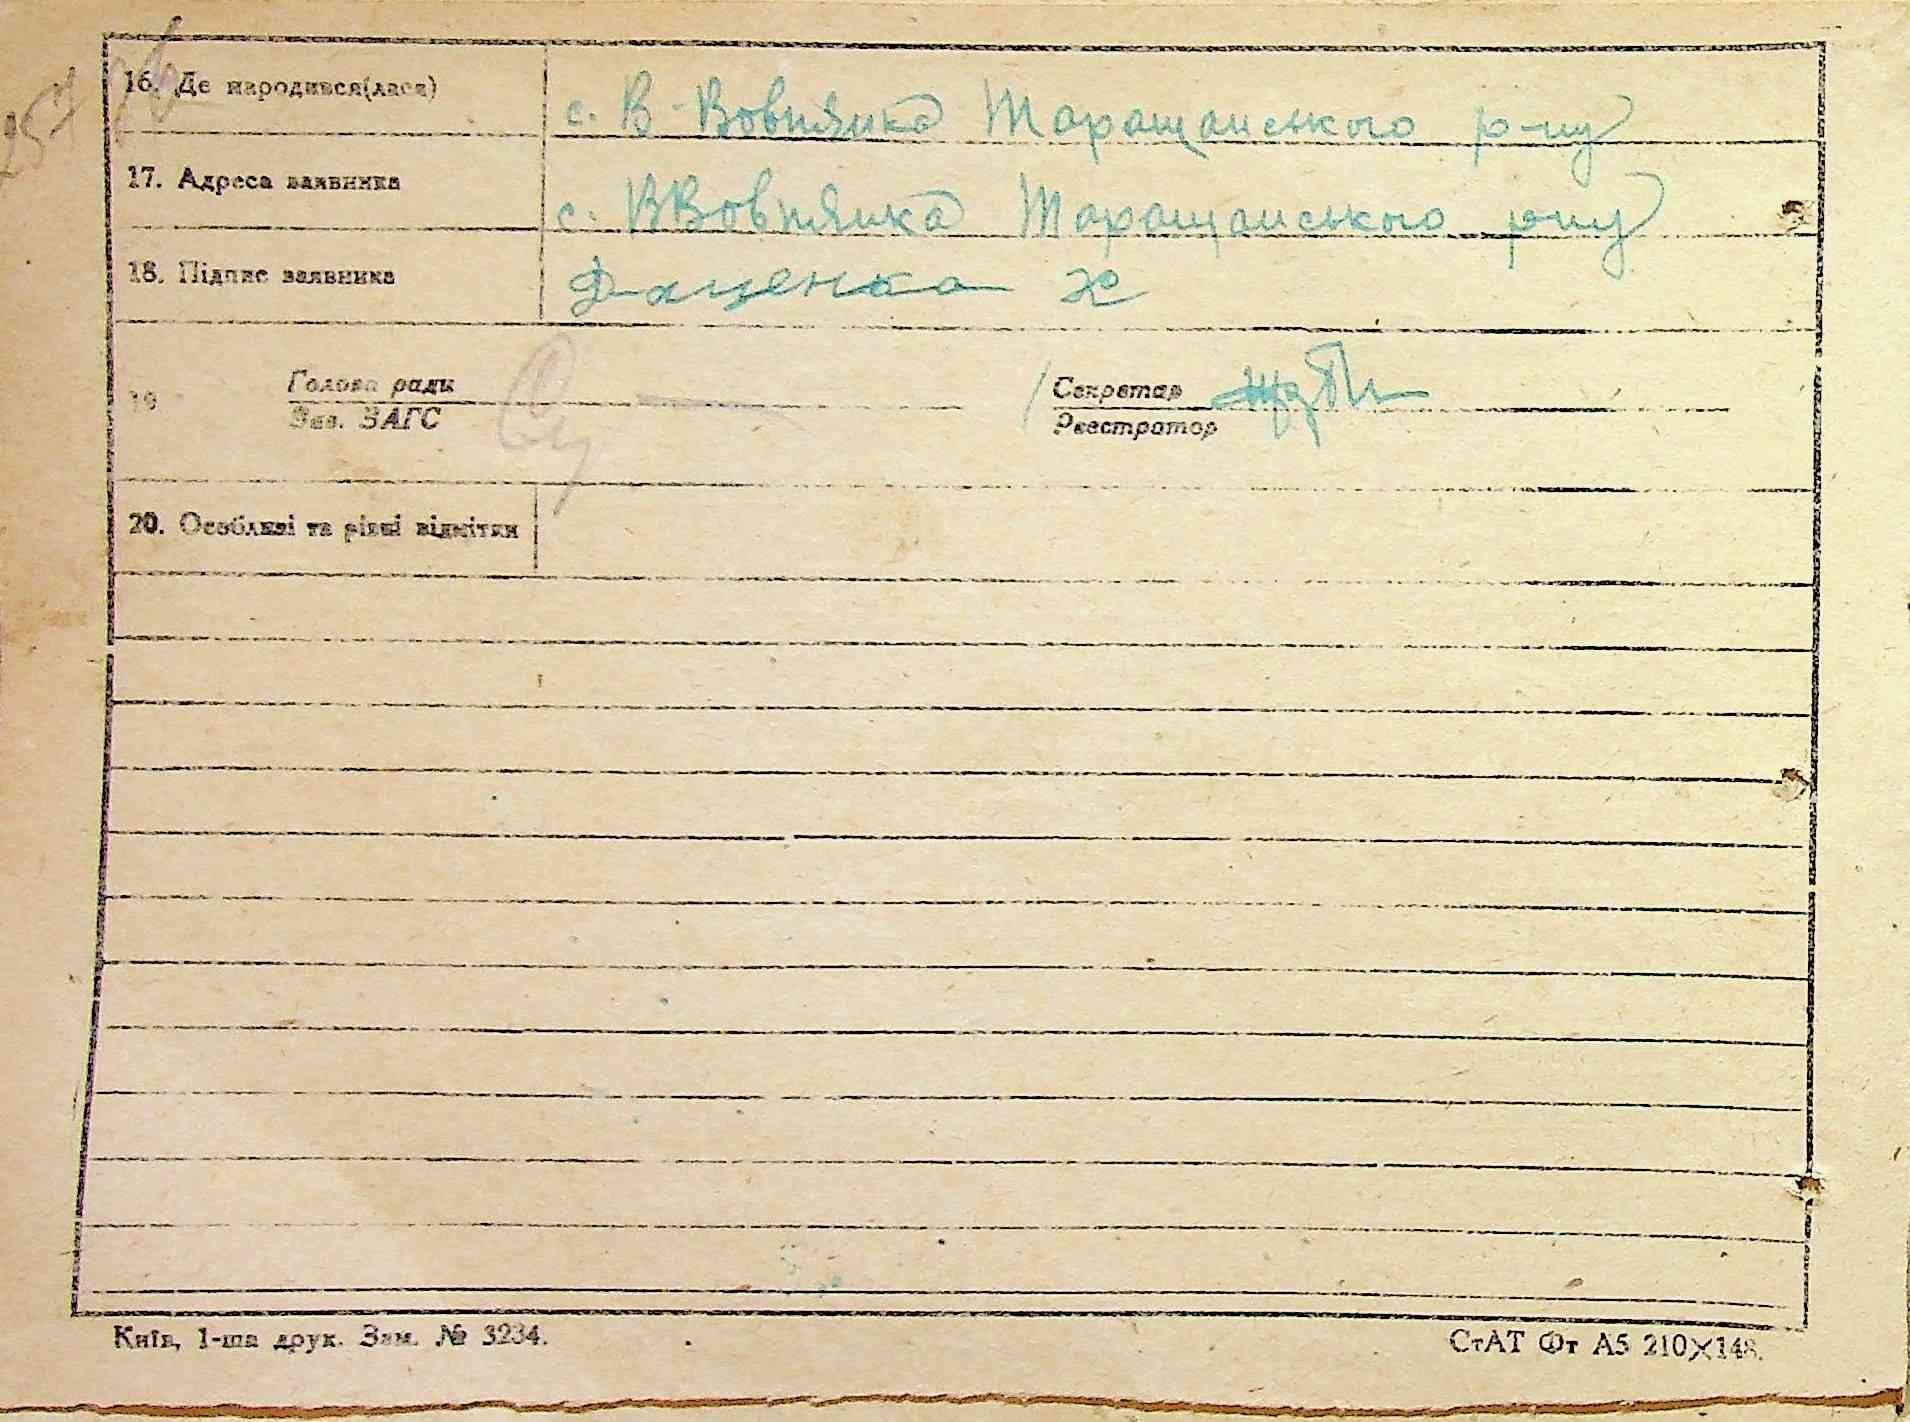 16. Де народився(лася)
с. В-Вовнянка Таращанського р-ну
17. Адреса заявника
с. ВВовнянка Таращанського р-ну
18. Підпис заявника
Даценко Х
19
Голова ради
Зав. ЗАГС
Секретар
Реєстратор
20. Особливі та різні відмітки
Київ, 1-ша друк. Зам. № 3234.
СтАТ Фт А5 210×148.